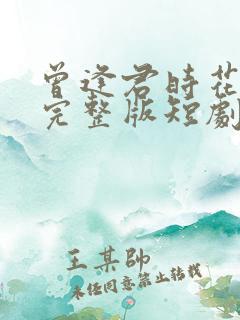 曾逢君時花
完整版短劇
王某帥
未经同意禁止转载